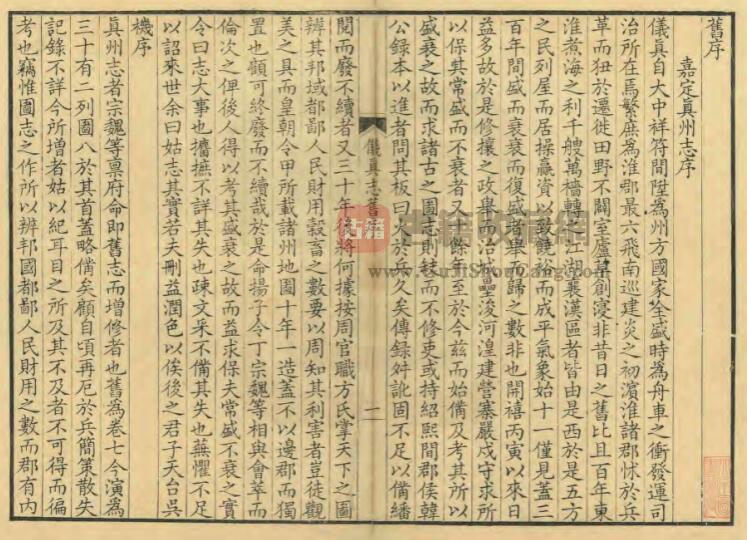 舊序
嘉定眞州志序
儀眞自大中祥符間陞為州方國家全盛時為舟車之衝發運司
治所在焉繁庶為淮郡最六飛南巡建炎之初濱淮諸郡怵於兵
革而狃於遷徙田野不闢室廬草創寖非昔日之舊比且百年東
淮煮海之利千艘萬檣轉之江湖襄漢區者皆由是西於是五方
之民列屋而居操贏資以致饒裕而成平氣象始十一僅見蓋三
百年間盛而衰衰而復盛者舉歸之數非也開禧丙寅以來日
益多故於是修攘之政舉而治城壘浚河湟建營寨嚴戍守求所
以保其常盛而不衰者又十餘年至於今茲而始備及考其所以
盛衰之故而求諸古之圖志則缺而不修吏或持紹熙間郡侯韓
公錄本以進者問其板曰火於兵久矣傳錄舛訛固不足以備繙
儀眞志舊序
二
閱而廢不續者又三十年後將何據按周官職方氏掌天下之圖
辨其邦域都鄙人民財用穀畜之數要以周知其利害者豈徒觀
美之具而皇朝令甲所載諸州地圖十年一造蓋不以邊郡而獨
置也顧可終廢而不續哉於是命揚子令丁宗魏等相與會萃而
倫次之俾後人得以考其盛衰之故而益求保夫常盛不衰之實
令曰志大事也攟摭不詳其失也疎文采不備其失也蕪懼不足
以詔來世余曰姑志其實若夫刪益潤色以俟後之君子天台吳
機序
眞州志者宗魏等稟府命即舊志而增修者也舊為卷七今演為
三十有二列圖八於其首蓋略備矣顧自頃再厄於兵簡策散失
記錄不詳今所增者姑以紀耳目之所及其不及者不可得而徧
考也竊惟圖志之作所以辨邦國都鄙人民財用之數而郡有內
古籍
www.GujiShuWang.com